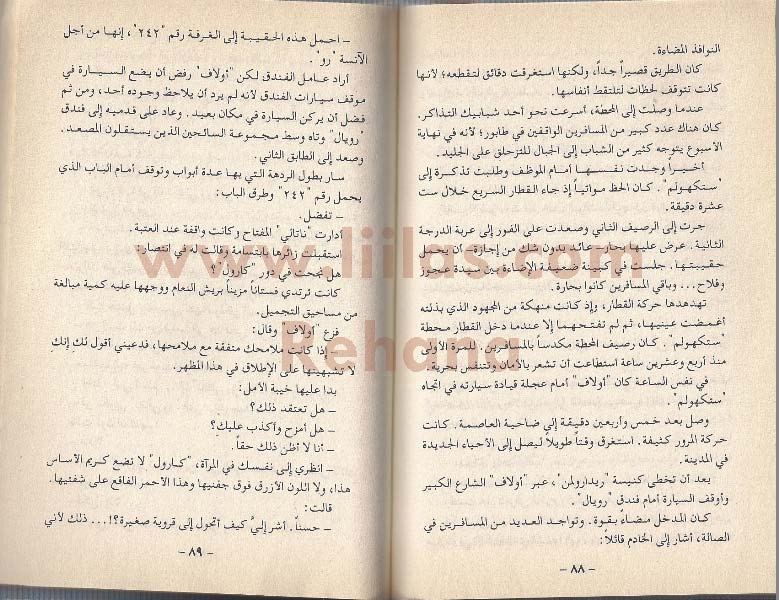 النوافذ المضاءة.
كان الطريق قصيراً جداً، ولكنها استغرقت دقائق لتقطعه؛ لأنها
كانت تتوقف لحظات لتلتقط أنفاسها.
عندما وصلت إلى المحطة، أسرعت نحو أحد شبابيك التذاكر.
كان هناك عدد كبير من المسافرين الواقفين في طابور؛ لأنه في نهاية
الأسبوع يتوجه كثير من الشباب إلى الجبال للتزحلق على الجليد.
أخيراً وجدت نفسها أمام الموظف وطلبت تذكرة إلى
"ستكهولم". كان الحظ مواتياً إذ جاء القطار السريع خلال ست
عشرة دقيقة.
جرت إلى الرصيف الثاني وصعدت على الفور إلى عربة الدرجة
الثانية. عرض عليها بحار- عائد بدون شك من إجازة- أن يحمل
حقيبتها. جلست في كبينة ضعيفة الإضاءة بين سيدة عجوز
وفلاح... وباقي المسافرين كانوا بحارة.
تهدهدها حركة القطار، وإذ كانت منهكة من المجهود الذي بذلته
أغمضت عينيها، ثم لم تفتحهما إلا عندما دخل القطار محطة
"ستكهولم". كان رصيف المحطة مكدساً بالمسافرين. للمرة الأولى
منذ أربع وعشرين ساعة استطاعت أن تشعر بالأمان وتتنفس بحرية.
في نفس الساعة كان "أولاف" أمام عجلة قيادة سيارته في اتجاه
ستكهولم".
وصل بعد خمس وأربعين دقيقة إلى ضاحية العاصمة. كانت
حركة المرور كثيفة. استغرق وقتاً طويلاً ليصل إلى الأحياء الجديدة
في المدينة.
بعد أن تخطى كنيسة "ريدارولمن"، عبر "أولاف" الشارع الكبير
وأوقف السيارة أمام فندق "رويال".
كان المدخل مضاءً بقوة. وتواجد العديد من المسافرين في
الصالة، أشار إلى الخادم قائلاً:
- ٨٨ -
- احمل هذه الحقيبة إلى الغرفة رقم "٢٤٢"، إنها من أجل
الآنسة "رو".
أراد عامل الفندق لكن "أولاف" رفض أن يضع السيارة في
موقف سيارات الفندق لأنه لم يرد أن يلاحظ وجوده أحد، ومن ثم
فضل أن يركن السيارة في مكان بعيد. وعاد على قدميه إلى فندق
"رويال" وتاه وسط مجموعة السائحين الذين يستقلون المصعد.
وصعد إلى الطابق الثاني.
سار بطول الردهة التي بها عدة أبواب وتوقف أمام الباب الذي
يحمل رقم "٢٤٢" وطرق الباب:
- تفضل.
أدارت "ناتالي" المفتاح وكانت واقفة عند العتبة.
استقبلت زائرها بابتسامة وقالت له في انتصار:
هل نجحت في دور "كارول"؟
كانت ترتدي فستاناً مزيناً بريش النعام ووجهها عليه كمية مبالغة
من مساحيق التجميل.
فزع "أولاف" وقال:
- إذا كانت ملامحك متفقة مع ملامحها، فدعيني أقول لك إنك
لا تشبهينها على الإطلاق في هذا المظهر.
بدا عليها خيبة الأمل:
- هل تعتقد ذلك؟
- هل أمزح وأكذب عليك؟
- أنا لا أظن ذلك حقاً.
- انظري إلى نفسك في المرآة، "كارول" لا تضع كريم الأساس
هذا، ولا اللون الأزرق فوق جفنيها وهذا الأحمر الفاقع على شفتيها.
قالت:
- حسناً. أشر إليّ كيف أتحول إلى قروية صغيرة؟!... ذلك لأني
- ٨٩ -
www.liilas.com
Rehana